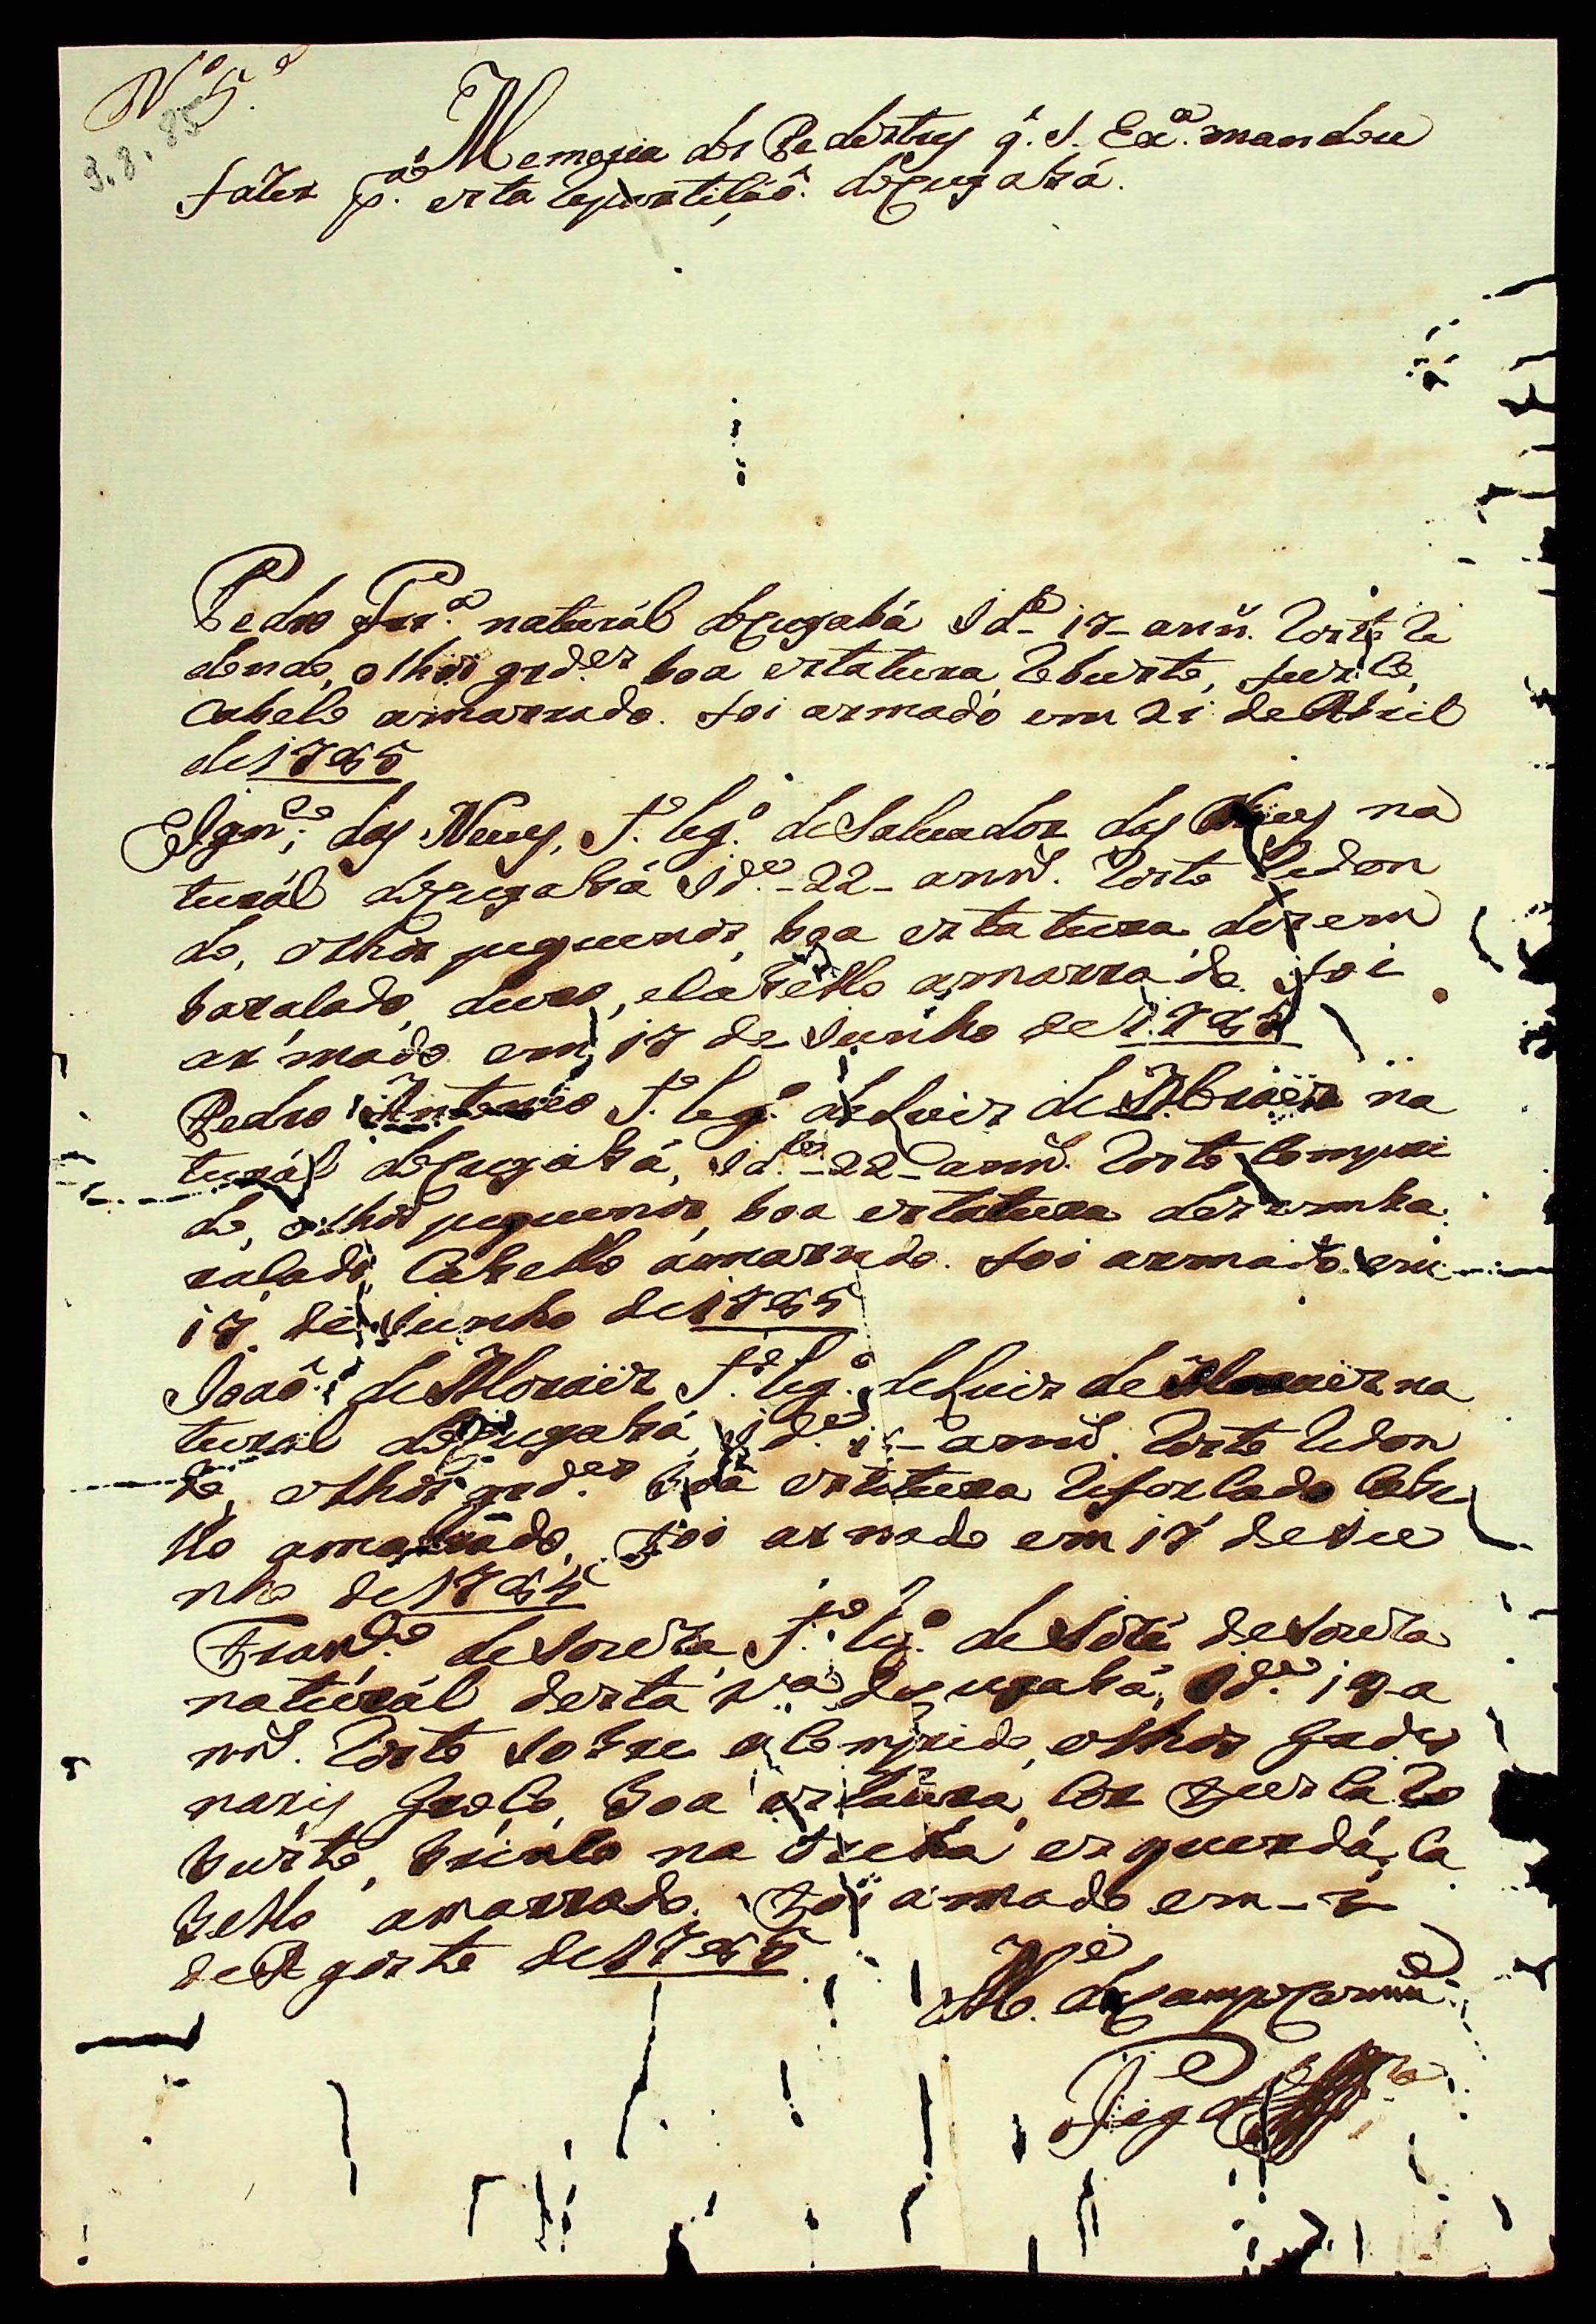 Nº 5º
3.8.85
Memoria dos Pedestres q̃. S. Exª. mandou
fazer pª. esta repartiçaõ. deCuyabá.
Pedro Frrª. natural deCuyabá Idᵉ 17- ann. Rosto re
dondo, olhos grdᵉˢ boa estatura, robusto, fusco,
Cabelo amarrado. foi armado em 21 de Abril
de 1785
Ignᶜⁱᵒ; das Neves, fº. legº. deSalvador das Neves na
turál deCuyabá Idᵉ.-22- annˢ. Rosto Redon
do, olhos pequenos, boa estatura, desem
baraſado, cabello amarrado. foi
armado em 17 de Junho de 1785
Pedro Antonio fº. legº. deLuiz de Moraes na
turál deCuyabá, Idᵉ.-22-annˢ. Rosto Compri
do, olhos pequenos, boa estatura desemba
raſado, Cabello amarrado. foi armado. em
17 de Junho de 1785
Joaõ. deMoraes fº. legº. deLuiz de Moraes na
tural deCuyabá, Idᵉ. annˢ. Rosto Redon
do, olhos grdᵉˢ. boa estatura Reforſado Cabe
llo amarrado, foi armado em 17 deJu
nho de 1785
Franᶜᵒ. deSouza, fº. legº. deJozé deSouza
naturál desta Vª deCuyabá, Idᵉ. 19-a
nnˢ. Rosto sobre o Comprido, olhos Grdes
naris Groço, boa estatura, Cor fusca Ro
busto, brinco na orelha esquerda, Ca
bello amarrado. foi armado em-
deAgosto de 1785